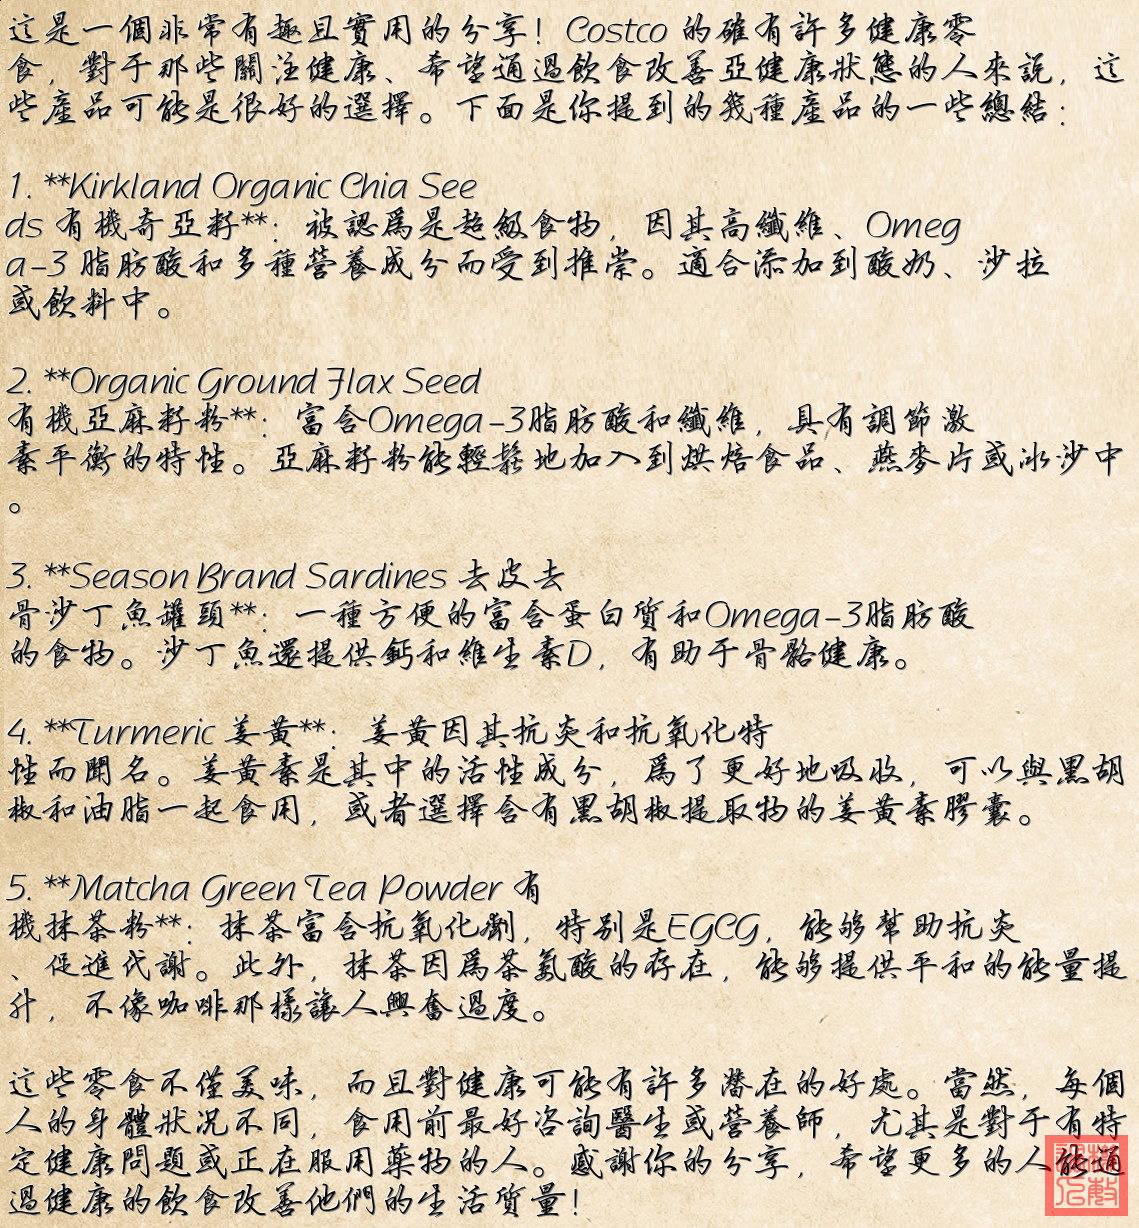 這是一個非常有趣且實用的分享！Costco 的確有許多健康零
食，對于那些關注健康、希望通過飲食改善亞健康狀態的人來說，這
些產品可能是很好的選擇。下面是你提到的幾種產品的一些總結：
1. **Kirkland Organic Chia See
ds 有機奇亞籽**：被認爲是超級食物，因其高纖維、Omeg
a-3 脂肪酸和多種營養成分而受到推崇。適合添加到酸奶、沙拉
或飲料中。
2. **Organic Ground Flax Seed
有機亞麻籽粉**：富含Omega-3脂肪酸和纖維，具有調節激
素平衡的特性。亞麻籽粉能輕鬆地加入到烘焙食品、燕麥片或冰沙中
。
3. **Season Brand Sardines 去皮去
骨沙丁魚罐頭**：一種方便的富含蛋白質和Omega-3脂肪酸
的食物。沙丁魚還提供鈣和維生素D，有助于骨骼健康。
4. **Turmeric 姜黃**：姜黃因其抗炎和抗氧化特
性而聞名。姜黃素是其中的活性成分，爲了更好地吸收，可以與黑胡
椒和油脂一起食用，或者選擇含有黑胡椒提取物的姜黃素膠囊。
5. **Matcha Green Tea Powder 有
機抹茶粉**：抹茶富含抗氧化劑，特別是EGCG，能够幫助抗炎
、促進代謝。此外，抹茶因爲茶氨酸的存在，能够提供平和的能量提
升，不像咖啡那樣讓人興奮過度。
這些零食不僅美味，而且對健康可能有許多潛在的好處。當然，每個
人的身體狀況不同，食用前最好咨詢醫生或營養師，尤其是對于有特
定健康問題或正在服用藥物的人。感謝你的分享，希望更多的人能通
過健康的飲食改善他們的生活質量！